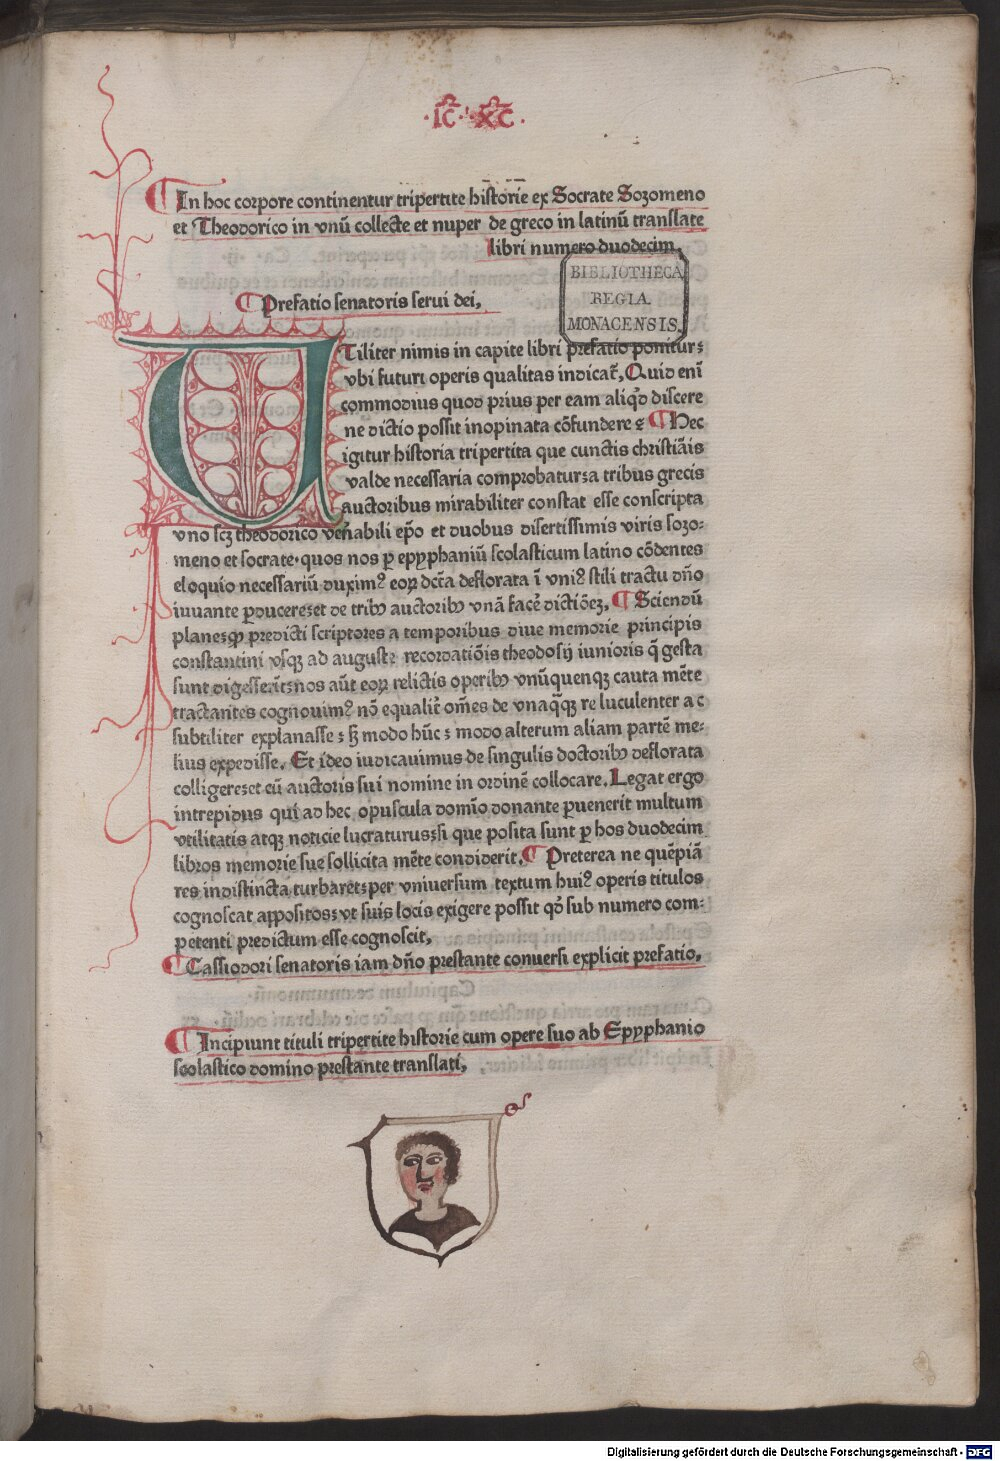 ·IC̅·XC̅·
¶In hoc corpore continentur tripertite historie ex Socrate Sozomeno
et Theodorico in vnū collecte et nuper de greco in latinū translate
libri numero duodecim.
BIBLIOTHECA
REGIA
MONACENSIS.
¶Prefatio senatoris serui dei,
UTiliter nimis in capite libri prefatio ponitur:
vbi futuri operis qualitas indicat᷑, Quid enī
commodius quod prius per eam aliqd̓ discere
ne dictio possit inopinata cōfundere: ¶Hec
igitur historia tripertita que cunctis christiāis
valde necessaria comprobatur:a tribus grecis
auctoribus mirabiliter constat esse conscripta
vno scꝫ theodorico venabili ep̄o et duobus disertissimis viris sozo:
meno et socrate·quos nos ꝑ epyphaniū scolasticum latino cōdentes
eloquio necessariū duximꝰ eoꝝ dc̄ta deflorata ī vniꝰ stili tractu dn̄o
iuuante ꝑducere:et de tribꝫ auctoribꝫ vnā facē dictiōeꝫ, ¶Sciendū
planeꝫ ꝙ predicti scriptores a temporibus diue memorie principis
constantini vsqꝫ ad auguste recordatiōis theodosij iunioris q̄ gesta
sunt digesserūt:nos aūt eoꝝ relictis operibꝫ vnūquenqꝫ cauta mēte
tractantes cognouimꝰ nō equalit᷑ om̄es de vnaq̄qꝫ re luculenter ac
subtiliter explanasse: sꝫ modo hūc: modo alterum aliam partē me:
lius expedisse. Et ideo iudicauimus de singulis doctoribꝫ deflorata
colligere:et cū auctoris sui nomine in ordinē collocare. Legat ergo
intrepidus qui ad hec opuscula domīo donante ꝑuenerit multum
vtilitatis atqꝫ noticie lucraturus:si que posita sunt ꝑ hos duodecim
libros memorie sue sollicita mēte condiderit. ¶Preterea ne quēpiā
res indistincta turbaret:per vniuersum textum huiꝰ operis titulos
cognoscat appositos:vt suis locis exigere possit qd̓ sub numero com:
petenti predictum esse cognoscit,
¶Cassiodori senatoris iam dn̄o prestante conuersi explicit prefatio,
¶Incipiunt tituli tripertite historie cum opere suo ab Epyphanio
scolastico domino prestante translati,
Digitalisierung gefördert durch die Deutsche Forschungsgemeinschaft - DFG